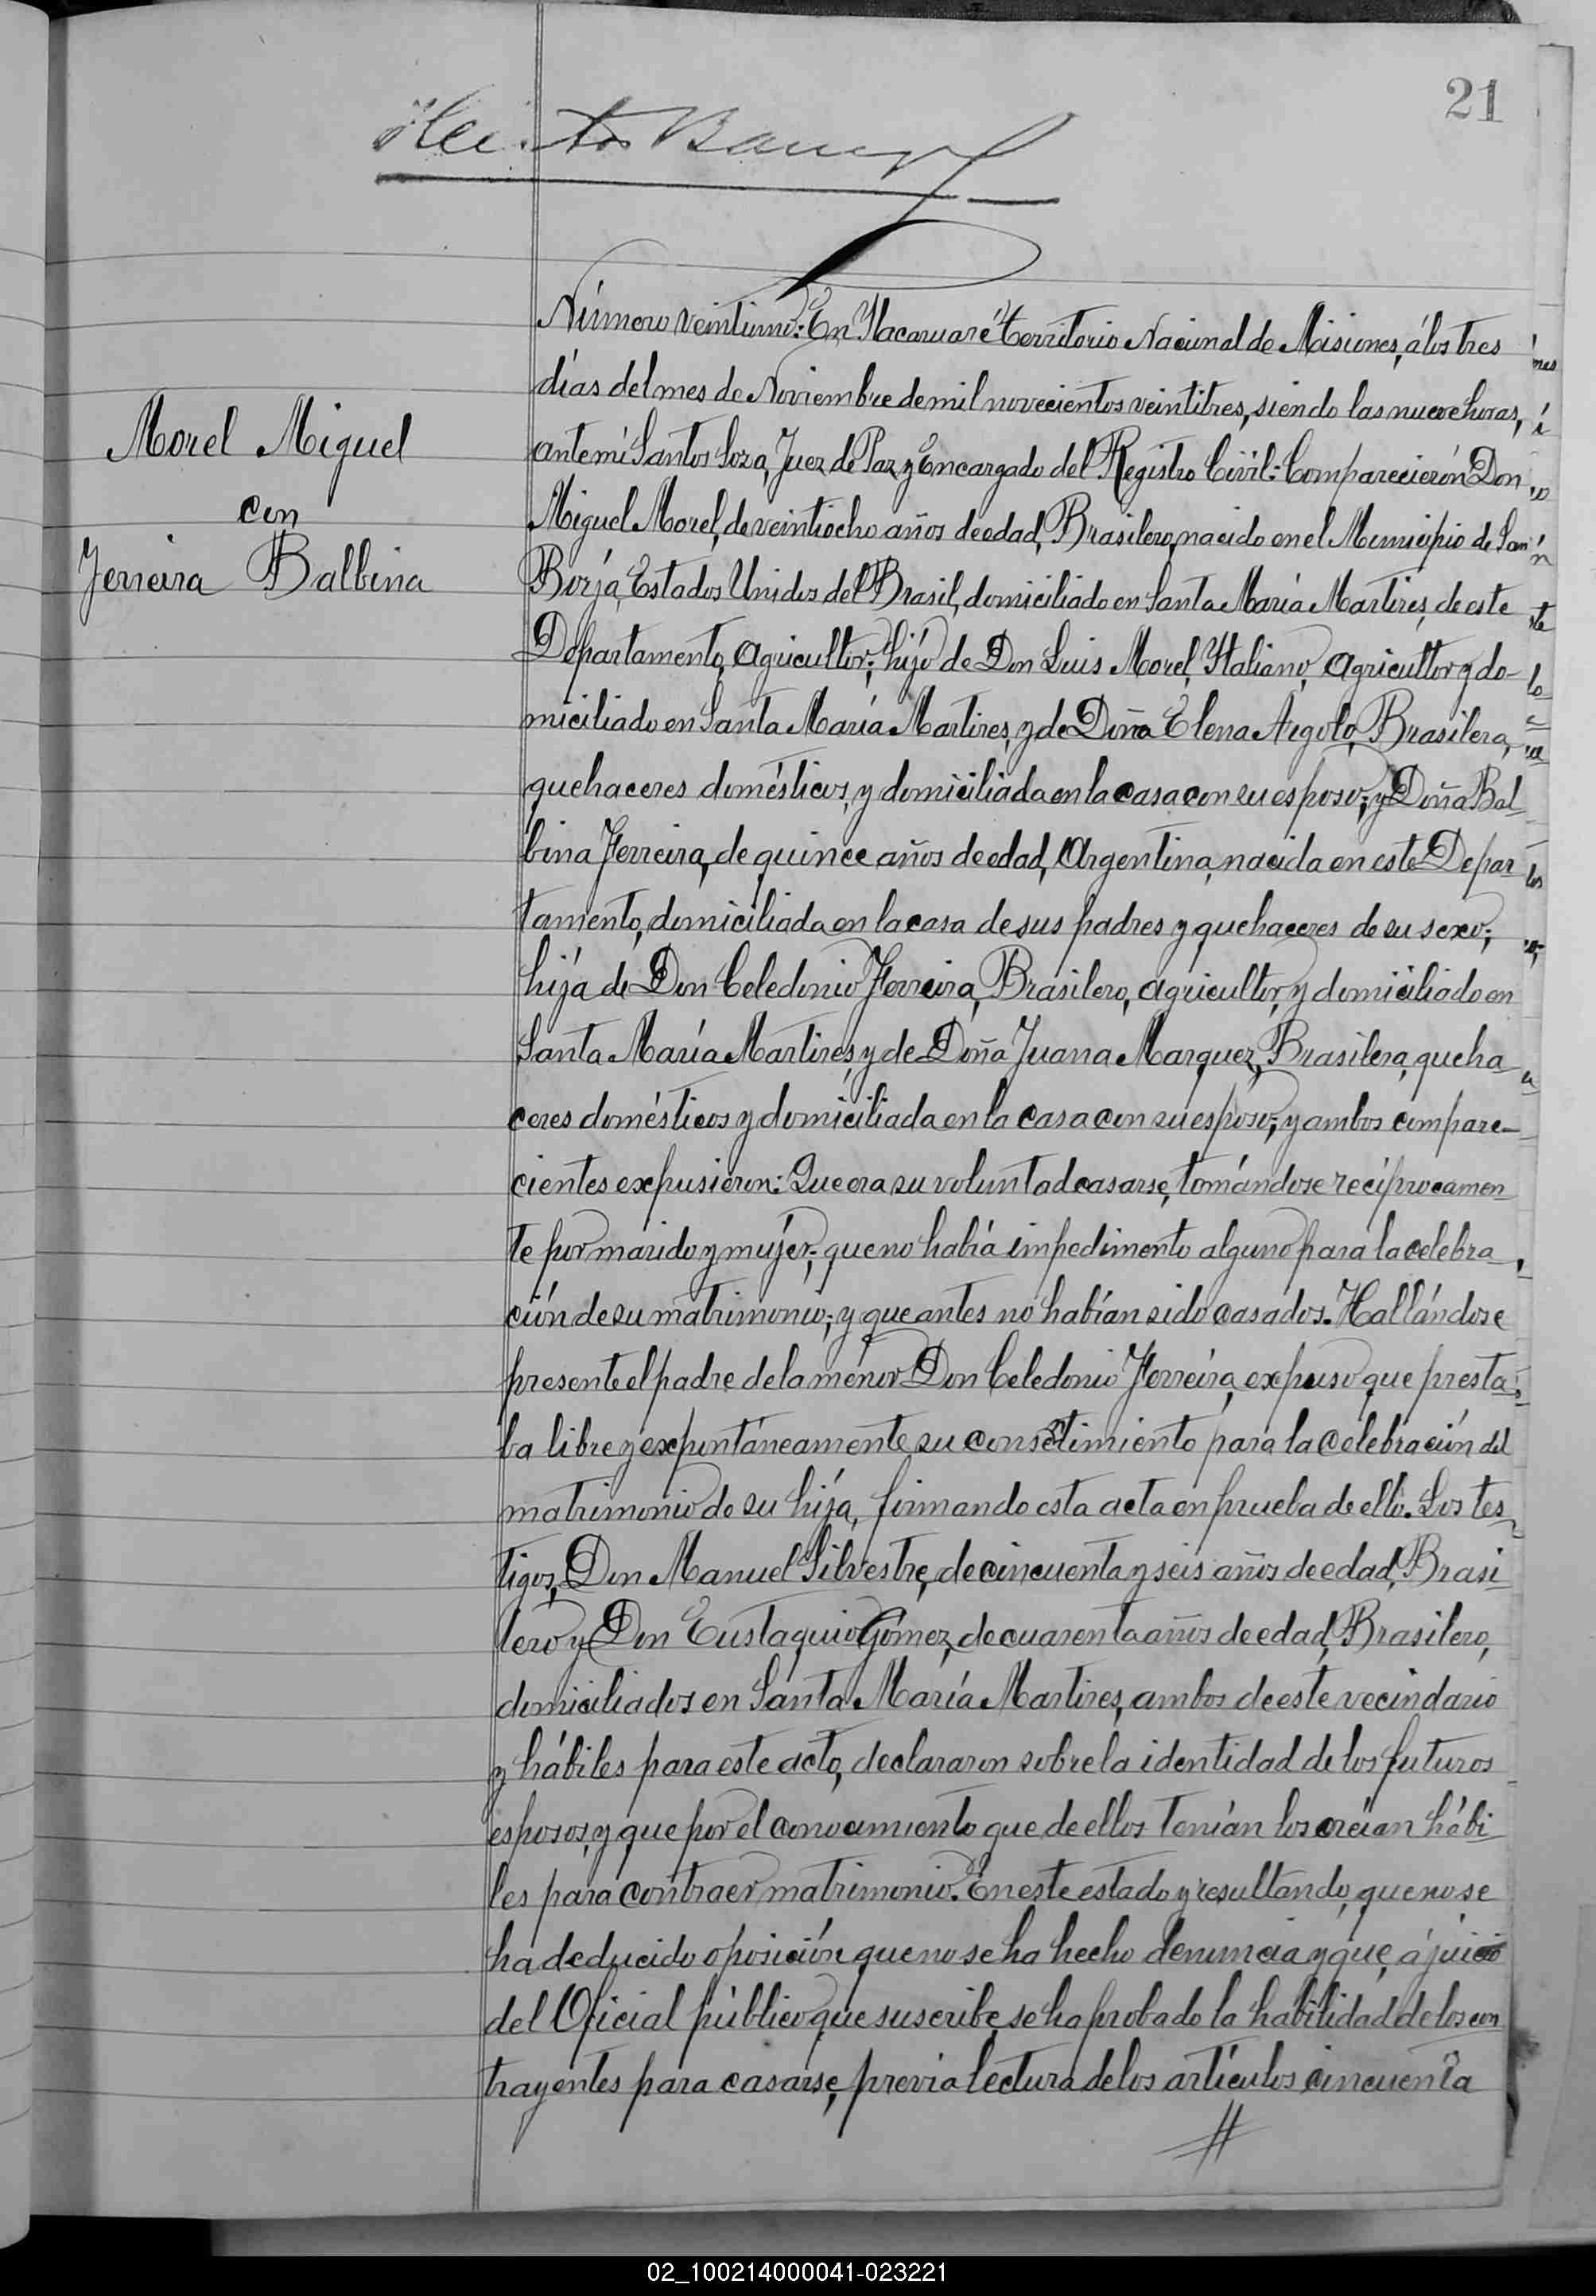 21
Número veintiuno: En Itacaruaré territorio Nacional de Misiones, á los tres
días del mes de Noviembre de mil novecientos veintitres, siendo las nueve horas,
Morel Miguel
con
Ferreira Balbina
ante mí Santos Sosa, Juez de Paz y Encargado del Registro Civil: Comparecierón Don
Miguel Morel, de veintiocho años de edad, Brasilero, nacido en el Municipio de San
Borja, Estados Unidos del Brasil, domiciliado en Santa María Martires, de este
Departamento, agricultor; hijo de Don Luis Morel, Italiano, agricultor y do-
miciliado en Santa María Martires, y de Doña Elena Argolo, Brasilera,
quehaceres domésticos, y domiciliada en la casa con su esposo; y Doña Bal
bina Ferreira, de quince años de edad, Argentina, nacida en este Depar
tamento, domiciliada en la casa de sus padres y quehaceres de su sexo;
hija de Don Celedonio Ferreira, Brasilero, agricultor, y domiciliado en
Santa María Martires, y de Doña Juana Marquez, Brasilera, queha
ceres domésticos y domiciliada en la casa con su esposo; y ambos compare-
cientes expusieron: Que era su voluntad casarse, tomándose recíprocamen
te por marido y mujer; que no había impedimento alguno para la celebra
ción de su matrimonio; y que antes no habían sido casados. Hallándose
presente el padre de la menor Don Celedonio Ferreira, expuso que presta
ba libre y expontáneamente su consentimiento para la celebración del
matrimonio de su hija, firmando esta acta en prueba de ello. Los tes
tigos, Don Manuel Silvestre, de cincuenta y seis años de edad, Brasi
lero y Don Eustaquio Gómez, de cuarenta años de edad, Brasilero,
domiciliados en Santa María Martires, ambos de este vecindario
y hábiles para este acto, declararon sobre la identidad de los futuros
esposos, y que por el conocimiento que de ellos tenían los creían hábi
les para contraer matrimonio. En este estado y resultando, que no se
ha deducido oposición que no se ha hecho denuncia y que, á juicio
del Oficial público que suscribe, se ha probado la habilidad de los con
trayentes para casarse, previa lectura de los artículos cincuenta
02_100214000041-023221